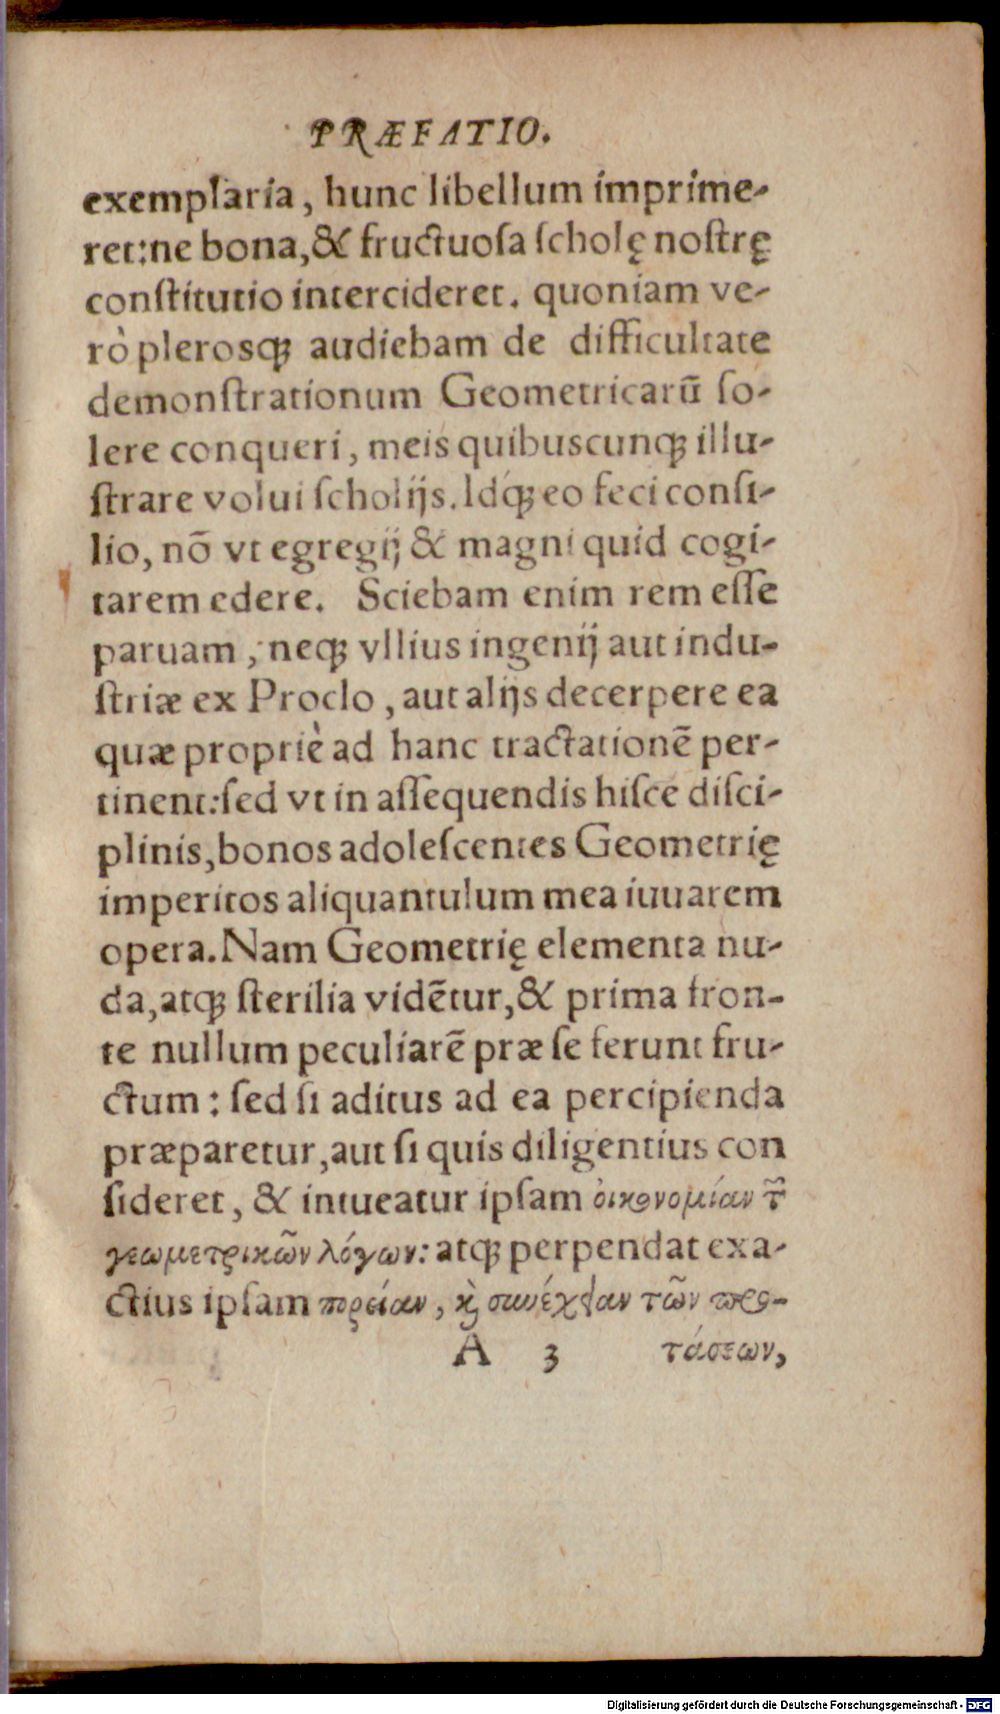 PRÆFATIO.
exemplaria, hunc libellum imprime-
ret: ne bona, & fructuosa scholę nostrę
constitutio intercideret. quoniam ve-
rò plerosq̃ʒ audiebam de difficultate
demonstrationum Geometricarū so-
lere conqueri, meis quibuscunqʒ illu-
strare volui scholijs. Idq́ʒ eo feci consi-
lio, nō vt egregij & magni quid cogi-
tarem edere. Sciebam enim rem esse
paruam, neqʒ vllius ingenij aut indu-
striæ ex Proclo, aut alijs decerpere ea
quæ propriè ad hanc tractationē per-
tinent: sed vt in assequendis hisce disci-
plinis, bonos adolescentes Geometrię
imperitos aliquantulum mea iuuarem
opera. Nam Geometrię elementa nu-
da, atqʒ sterilia vidētur, & prima fron-
te nullum peculiarē præ se ferunt fru-
ctum: sed si aditus ad ea percipienda
præparetur, aut si quis diligentius con
sideret, & intueatur ipsam οἰκονομίαν τ῀
γεωμετρικῶν λόγων: atqʒ perpendat exa-
ctius ipsam πορείαν, ϗ̀ συνέχειαν τῶν προ-
A 3 τάσεων,
Digitalisierung gefördert durch die Deutsche Forschungsgemeinschaft - DFG